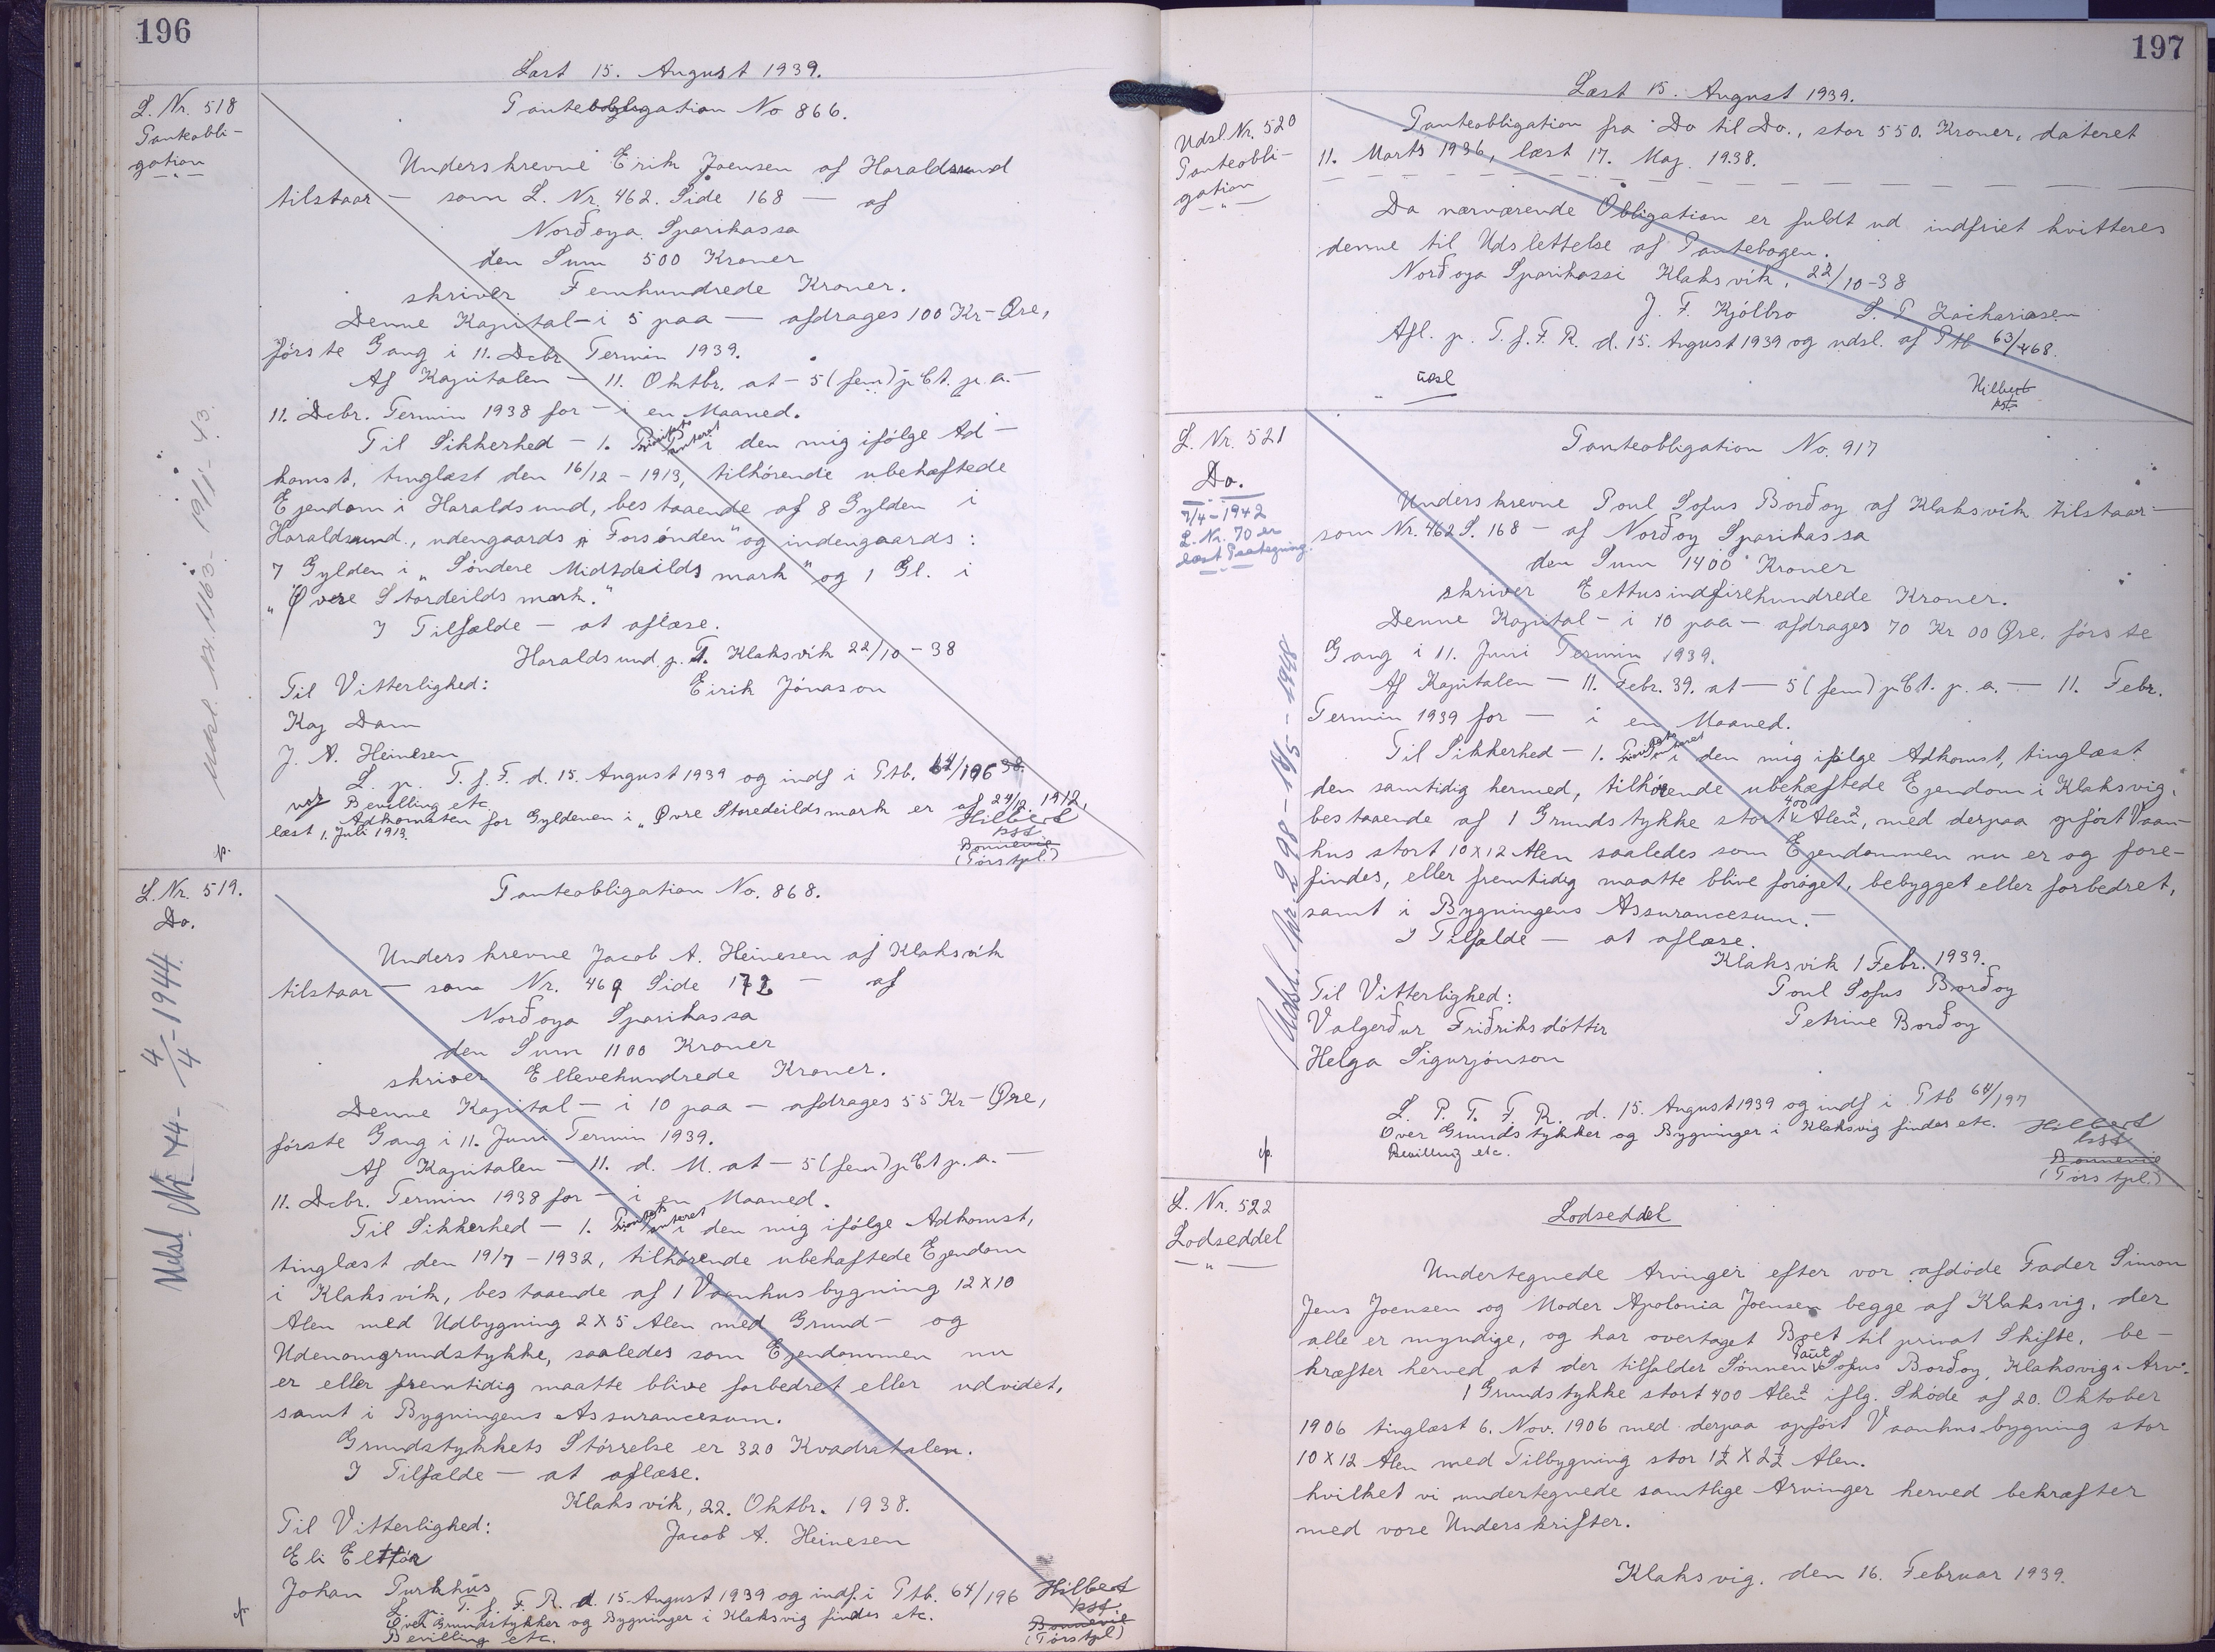 196
Læst 15. August 1939.
L. Nr. 518
Panteobli-
gation
Panteobligation No 866.
Underskrevne Eirik Joensen af Haraldsund
tilstaar — som L. Nr. 462. Side 168 — af
Norðoya Sparikassa
den Sum 500 Kroner
skriver Femhundrede Kroner.
Denne Kapital — i 5 paa — afdrages 100 Kr — Øre,
første Gang i 11. Dcbr. Termin 1939.
Af Kapitalen — 11. Oktbr. at — 5 (fem) pCt. p. a. —
11. Dcbr. Termin 1938 for — i en Maaned.
Til Sikkerhed — 1. Prioritets Panteret i den mig ifølge Ad-
komst, tinglæst den 16/12 - 1913, tilhørende ubehæftede
Ejendom i Haraldsund, bestaaende af 8 Gylden i
Haraldsund, udengaards „Forsønden" og indengaards:
7 Gylden i „Søndere Midtdeilds mark" og 1 Gl. i
„Øvere Stordeilds mark."
I Tilfælde — at aflæse.
Haraldsund, p. T. Klaksvik 22/10 - 38
Til Vitterlighed:
Eirik Jónason
Kaj Dam
J. A. Heinesen
L. p. T. f. F. d. 15. August 1939 og indf i Ptb. 64/196
Bevilling etc.
Adkomsten for Gyldenen i „Øvre Storedeildsmark er af 24/12. 1912,
læst 1. Juli 1913.
Hilbert
kst
Bonnevie
(Tórs tpl.)
Udsl. Nr. 1163 - 19/11 - 43.
L. Nr. 519.
Do.
Panteobligation No. 868.
Underskrevne Jacob A. Heinesen af Klaksvik
tilstaar — som Nr. 469 Side 172 — af
Norðoya Sparikassa
den Sum 1100 Kroner
skriver Ellevehundrede Kroner.
Denne Kapital — i 10 paa — afdrages 55 Kr — Øre,
første Gang i 11. Juni Termin 1939.
Af Kapitalen — 11. d. M. at — 5 (fem) pCt p. a. —
11. Dcbr. Termin 1938 for — i en Maaned.
Til Sikkerhed — 1. Prioritets Panteret i den mig ifølge Adkomst,
tinglæst den 19/7 - 1932, tilhørende ubehæftede Ejendom
i Klaksvik, bestaaende af 1 Vaanhusbygning 12 X 10
Alen med Udbygning 2 X 5 Alen med Grund- og
Udenomgrundstykke, saaledes som Ejendommen nu
er eller fremtidig maatte blive forbedret eller udvidet,
samt i Bygningens Assurancesum.
Grundstykkets Størrelse er 320 Kvadratalen.
I Tilfælde — at aflæse.
Klaksvik, 22. Oktbr. 1938.
Til Vitterlighed:
Jacob A. Heinesen
Eli Elttør
Johan Purkhús
L. p. T. f. F. R. d. 15. August 1939 og indf. i Ptb. 64/196
Over Grundstykker og Bygninger i Klaksvig findes etc.
Bevilling etc.
Hilbert
kst
Bonnevie
(Tórs tpl)
Udsl Nr 44 - 4/4 - 1944
197
Læst 15. August 1939.
Udsl. Nr. 520
Panteobli-
gation
Panteobligation fra Do til Do., stor 550. Kroner, dateret
11. Marts 1936, læst 17. Maj 1938.
Da nærværende Obligation er fuldt ud indfriet kvitteres
denne til Udslettelse af Pantebogen.
Norðoya Sparikassi Klaksvik, 22/10 - 38
J. F. Kjölbro S. P. Zachariasen
Afl. p. T. f. F. R. d. 15. August 1939 og udsl. af Ptb 63/468.
udsl
Hilbert
kst
L. Nr. 521
Do.
7/4 - 1942
L. Nr. 70 er
læst Paategning.
Panteobligation No. 917
Underskrevne Poul Sofus Borðoy af Klaksvik tilstaar —
som Nr. 462 S. 168 — af Norðoy Sparikassa
den Sum 1400 Kroner
skriver Eettusindfirehundrede Kroner.
Denne Kapital — i 10 paa — afdrages 70 Kr 00 Øre, første
Gang i 11. Juni Termin 1939.
Af Kapitalen — 11. Febr. 39. at — 5 (fem) pCt. p. a. — 11. Febr.
Termin 1939 for — i en Maaned.
Til Sikkerhed — 1. Prioritets Panteret i den mig ifølge Adkomst, tinglæst
den samtidig hermed, tilhørende ubehæftede Ejendom i Klaksvig,
bestaaende af 1 Grundstykke stort 400 Alen², med derpaa opført Vaan-
hus stort 10 X 12 Alen saaledes som Ejendommen nu er og fore-
findes, eller fremtidig maatte blive forøget, bebygget eller forbedret,
samt i Bygningens Assurancesum. —
I Tilfælde — at aflæse.
Klaksvik 1 Febr. 1939.
Til Vitterlighed:
Poul Sofus Borðoy
Valgerður Friðriksdóttir
Petrine Borðoy
Helga Sigurjónson
L. P. T. F. R. d. 15. August 1939 og indf i Ptb 64/197
Over Grundstykker og Bygninger i Klaksvig findes etc.
Bevilling etc.
Hilbert
kst
Bonnevie
(Tórs tpl.)
Udsl. Nr. 298 - 14/5 - 1948
L. Nr. 522
Lodseddel
Lodseddel
Undertegnede Arvinger efter vor afdøde Fader Simon
Jens Joensen og Moder Apolonia Joensen begge af Klaksvig, der
alle er myndige, og har overtaget Boet til privat Skifte, be-
kræfter herved at der tilfalder Sønnen Paul Sofus Borðoy, Klaksvig i Arv:
1 Grundstykke stort 400 Alen² iflg. Skøde af 20. Oktober
1906 tinglæst 6. Nov. 1906 med derpaa opført Vaanhusbygning stor
10 X 12 Alen med Tilbygning stor 1½ X 2½ Alen.
hvilket vi undertegnede samtlige Arvinger herved bekræfter
med vore Underskrifter.
Klaksvig, den 16. Februar 1939.